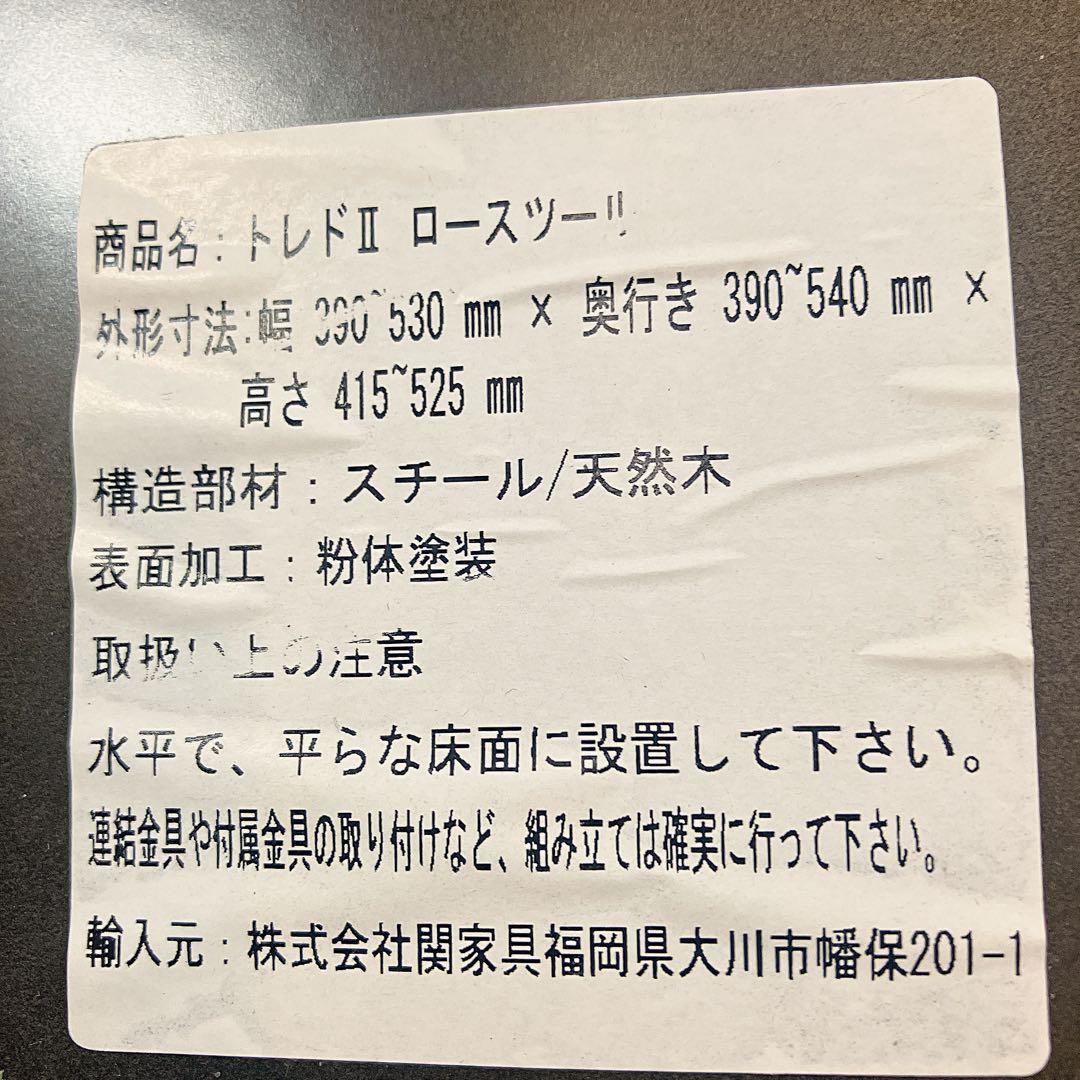 商品名：トレドⅡ ロースツール
外形寸法:幅 390~530 mm × 奥行き 390~540 mm ×
高さ 415~525 mm
構造部材：スチール/天然木
表面加工：粉体塗装
取扱い上の注意
水平で、平らな床面に設置して下さい。
連結金具や付属金具の取り付けなど、組み立ては確実に行って下さい。
輸入元：株式会社関家具福岡県大川市幡保201-1